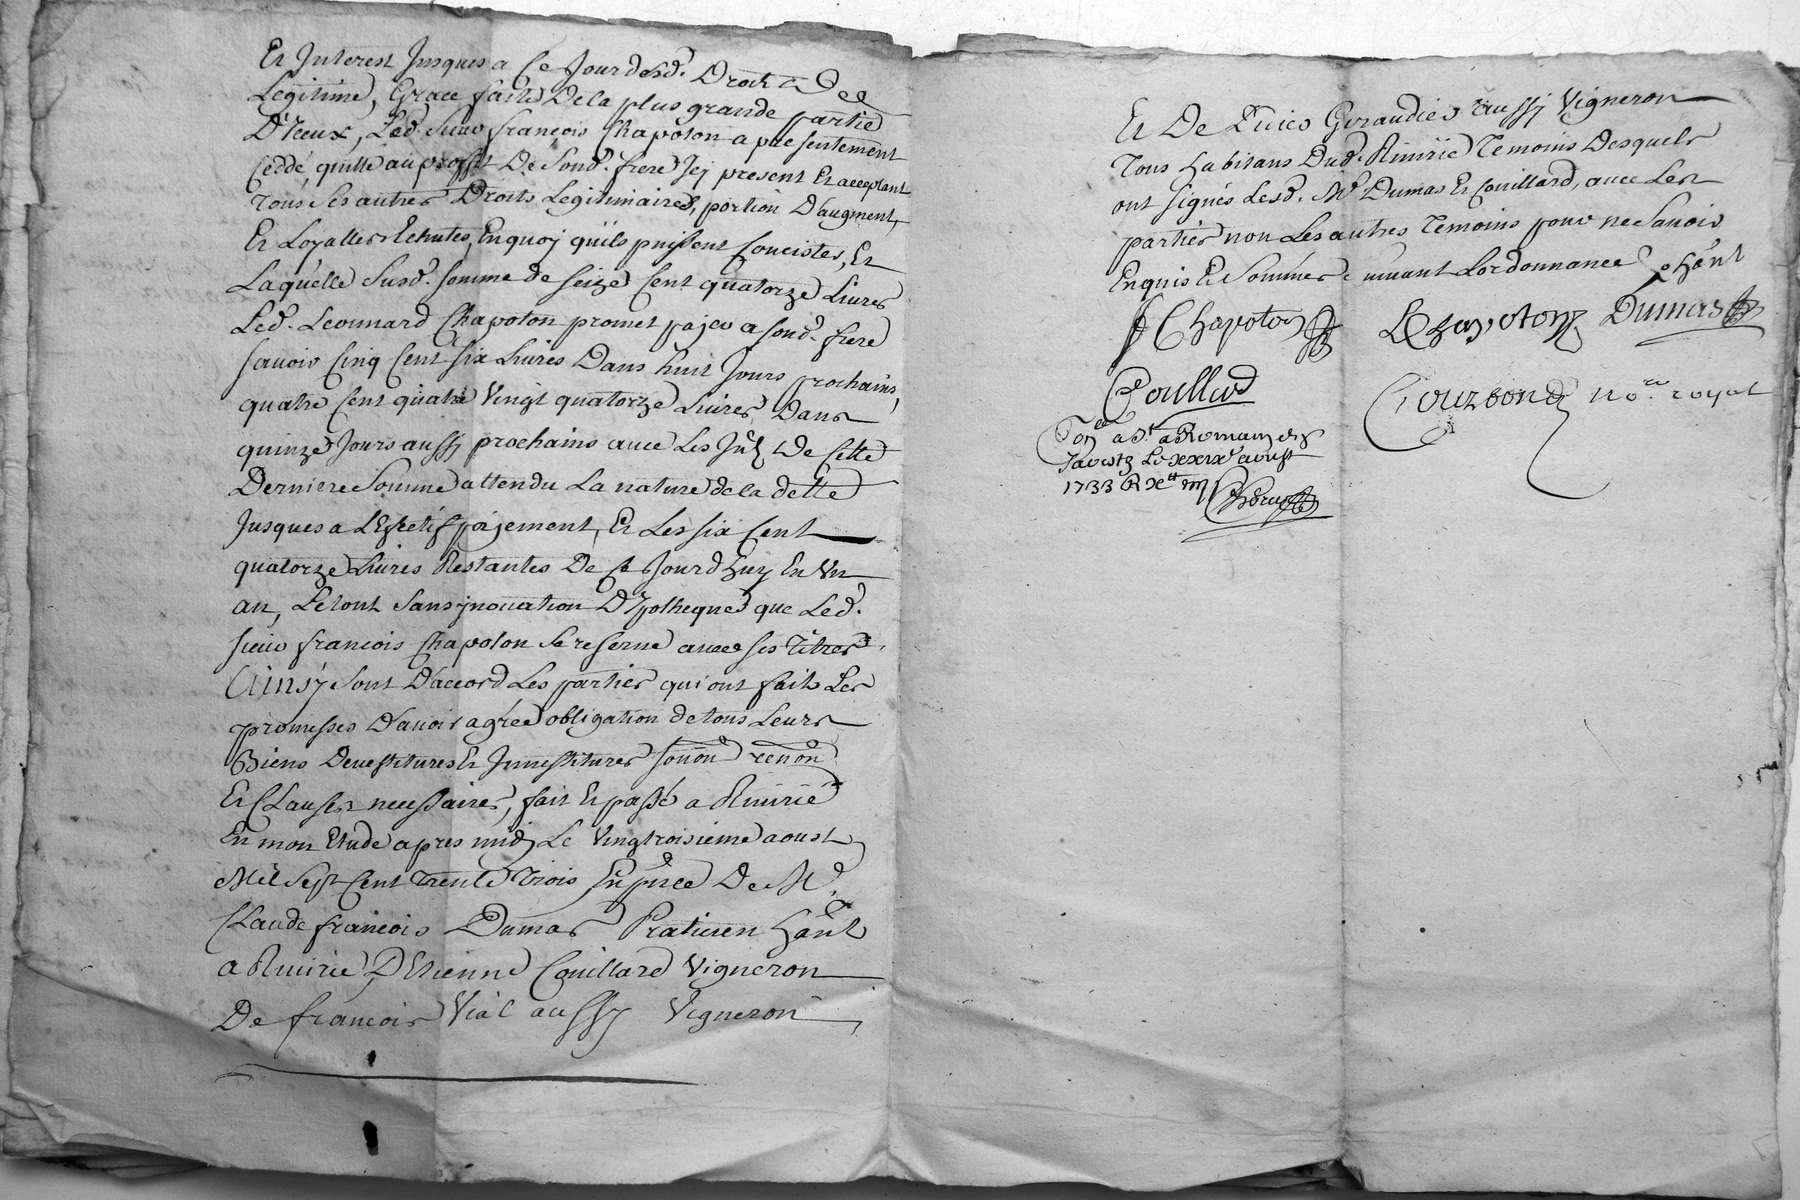 Et Interest Jusques a Ce Jour desd. Droits De
Legitime, Grace faite De la plus grande partie
D'Iceux, Led. Sieur françois Chapoton a presentement
Ceddé, quitté au proffit De Sond. frere Icy present Et acceptant
Tous Ses autres Droits Legitimaires, portion D'augment,
Et Loyalles Echutes, En quoy qu'ils puissent Concister, Et
Laquelle Susd. Somme de Seize Cent quatorze Livres
Led. Leonnard Chapoton promet payer a Sond. frere
Sauoir Cinq Cent Six Livres Dans huit Jours prochains,
quatre Cent quatre Vingt quatorze Livres Dans
quinze Jours aussy prochains auec Les Jnt. De Cette
Derniere Somme attendu La nature de la dette
Jusques a L'Efectif payement, Et Les Six Cent
quatorze Livres Restantes De Ce Jourd'huy En Un
an, Le tout Sans ynouation D'ypotheque que Led.
Sieur françois Chapoton Se reserue auec Ses Titres,
Ainsy Sont D'accord Les parties qui ont fait Les
promesses D'auoir agrée obligation de tous Leurs
Biens Deuestitures Et Jnuestitures renon
Et Clauses necessaires, fait Et passé a Riuirie
En mon Etude apres midy Le Vingt troisieme aoust
Mil Sept Cent Trente Trois En pnce De Me
Claude françois Dumas Praticien hant
a Riuirie D'Etienne Couillard Vigneron
De françois Vial aussy Vigneron
Et De Giraudier aussy Vigneron
Tous habitans Dud. Riuirie Temoins Desquels
ont Signés Lesd. Me Dumas Et Couillard, auec Les
parties non Les autres Temoins pour ne Sauoir
Enquis Et Sommés suiuant L'ordonnance
Chapoton L Chapoton Dumas
Couillard
No.re royal
a St. Romain
Le xxix aoust
1733 R